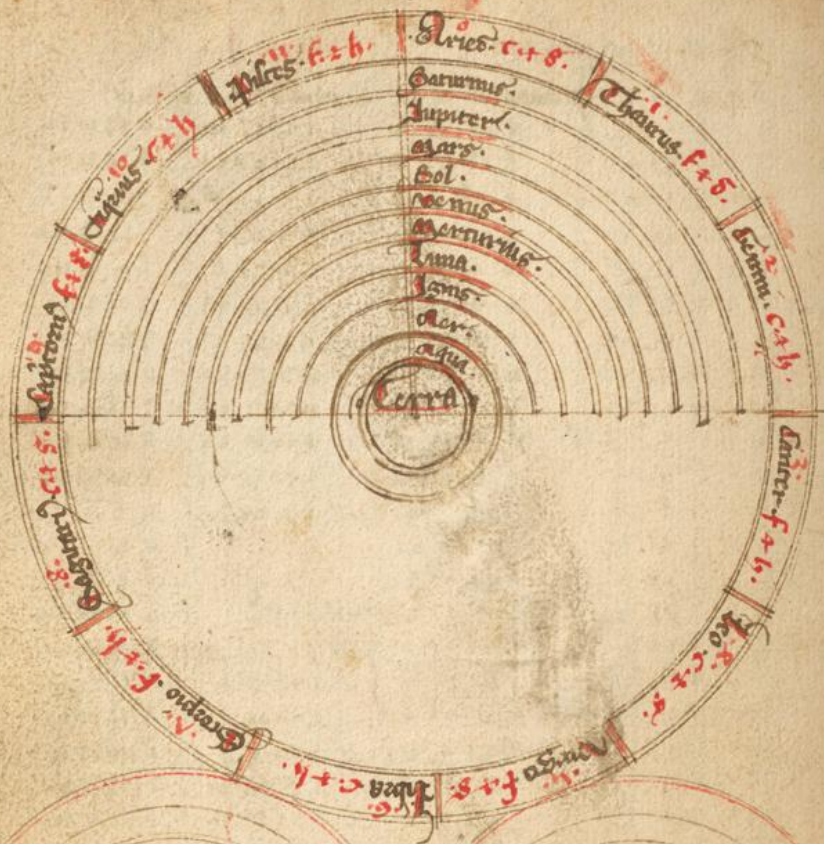 Aries. c + s.
Thaurus. f + s.
Gemini. c + h.
Cancer. f + h.
Leo. c + s.
Virgo f + s.
Libra c + h.
Scorpio. f + h.
f + s.
c + h
Pisces. f + h.
Saturnus.
Jupiter.
Mars.
Sol.
Venus.
Mercurius.
Luna.
Ignis.
Aer.
Aqua.
Terra